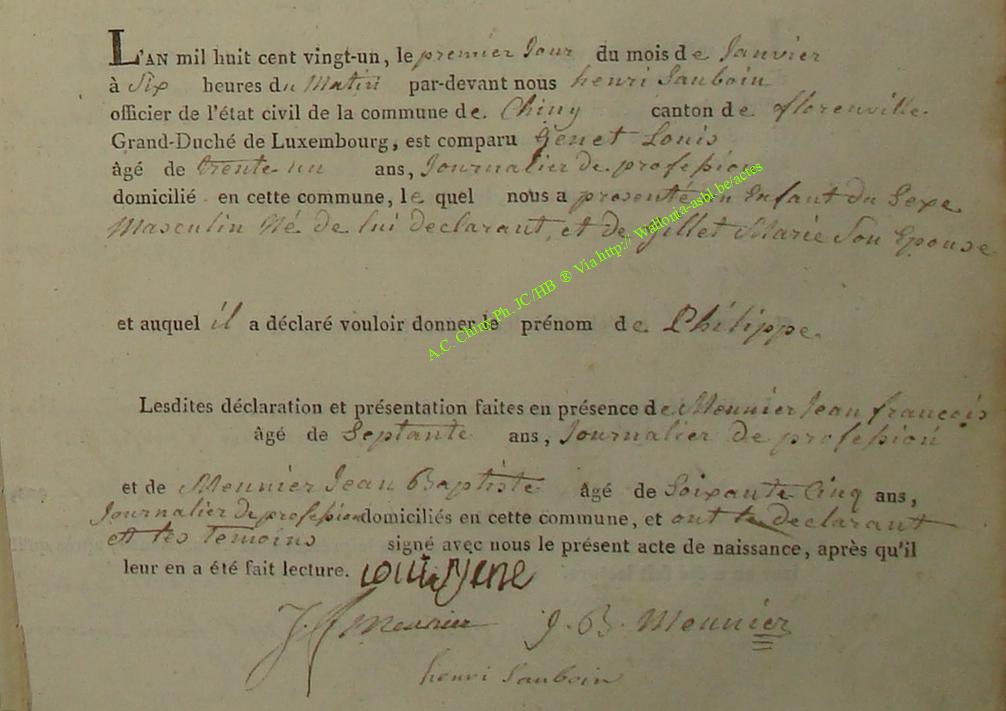 L'AN mil huit cent vingt-un, le premier Jour du mois de Janvier
à Six heures du Matin par-devant nous henri Sauboin
officier de l'état civil de la commune de Chiny canton de florenville
Grand-Duché de Luxembourg, est comparu Genet Louis
âgé de trente un ans, Journalier de profession
domicilié en cette commune, le quel nous a presenté un Enfant du Sexe
Masculin Né de lui declarant, et de Gillet Marie Son Epouse
et auquel il a déclaré vouloir donner le prénom de Philippe.
Lesdites déclaration et présentation faites en présence de Meunier Jean françois
âgé de Septante ans, Journalier de profession
et de Meunier Jean Baptiste âgé de Soixante Cinq ans,
Journalier de profession domiciliés en cette commune, et ont le declarant
et les temoins signé avec nous le présent acte de naissance, après qu'il
leur en a été fait lecture. Loui Jene
J f Meunier J. B. Meunier
henri Sauboin
A.C. Chiny Ph. JC/HB ® Via http:// Wallonia-asbl.be/actes